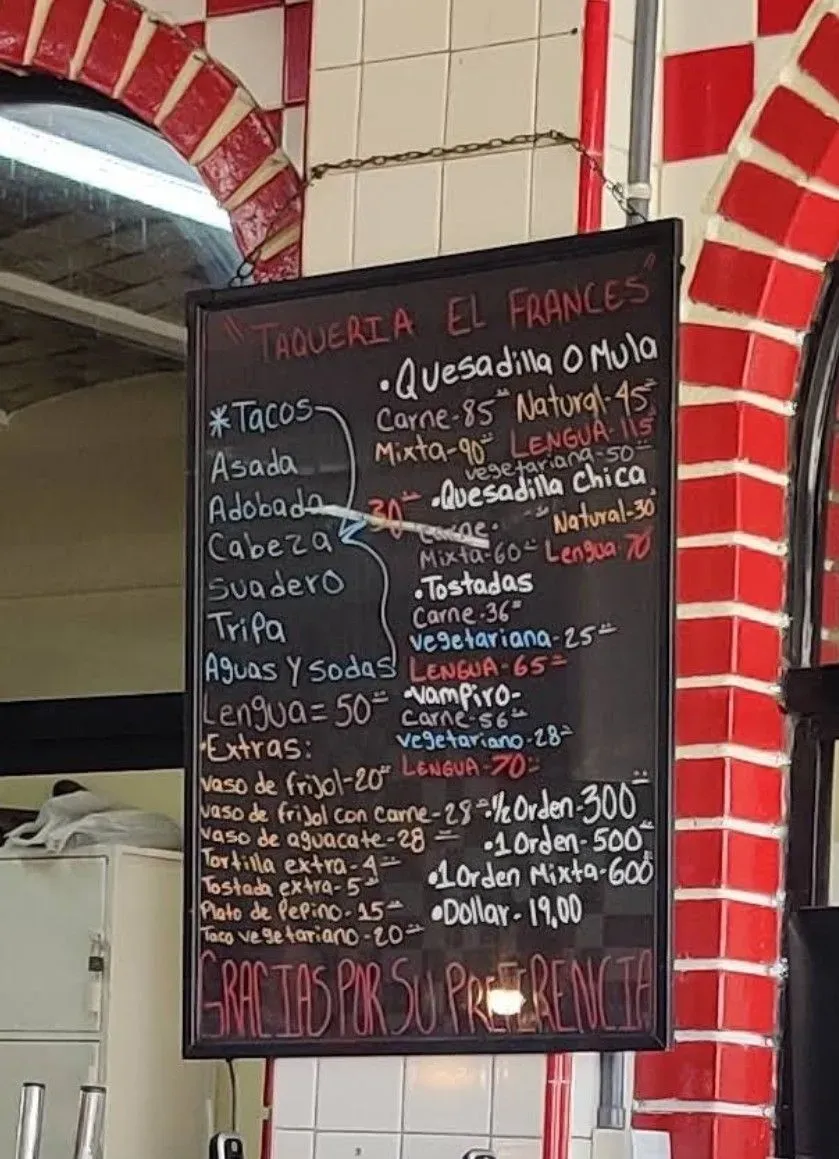 "TAQUERIA EL FRANCES"
*Tacos
Asada
Adobada
Cabeza
Suadero
Tripa
Aguas Y Sodas
30=
Lengua = 50=
•Extras:
vaso de frijol-20=
vaso de frijol con carne-28=
vaso de aguacate-28=
Tortilla extra-4=
Tostada extra-5=
Plato de Pepino-15=
Taco vegetariano-20=
•Quesadilla O Mula
Carne-85= Natural-45=
Mixta-90= LENGUA-115
vegetariana-50=
•Quesadilla chica
Natural-30
Mixta-60= Lengua-70
•Tostadas
Carne-36=
vegetariana-25=
LENGUA-65=
•vampiro-
Carne-56=
vegetariano-28=
LENGUA-70=
•½ Orden-300=
•1 Orden-500=
•1 Orden Mixta-600
•Dollar-19,00
GRACIAS POR SU PREFERENCIA